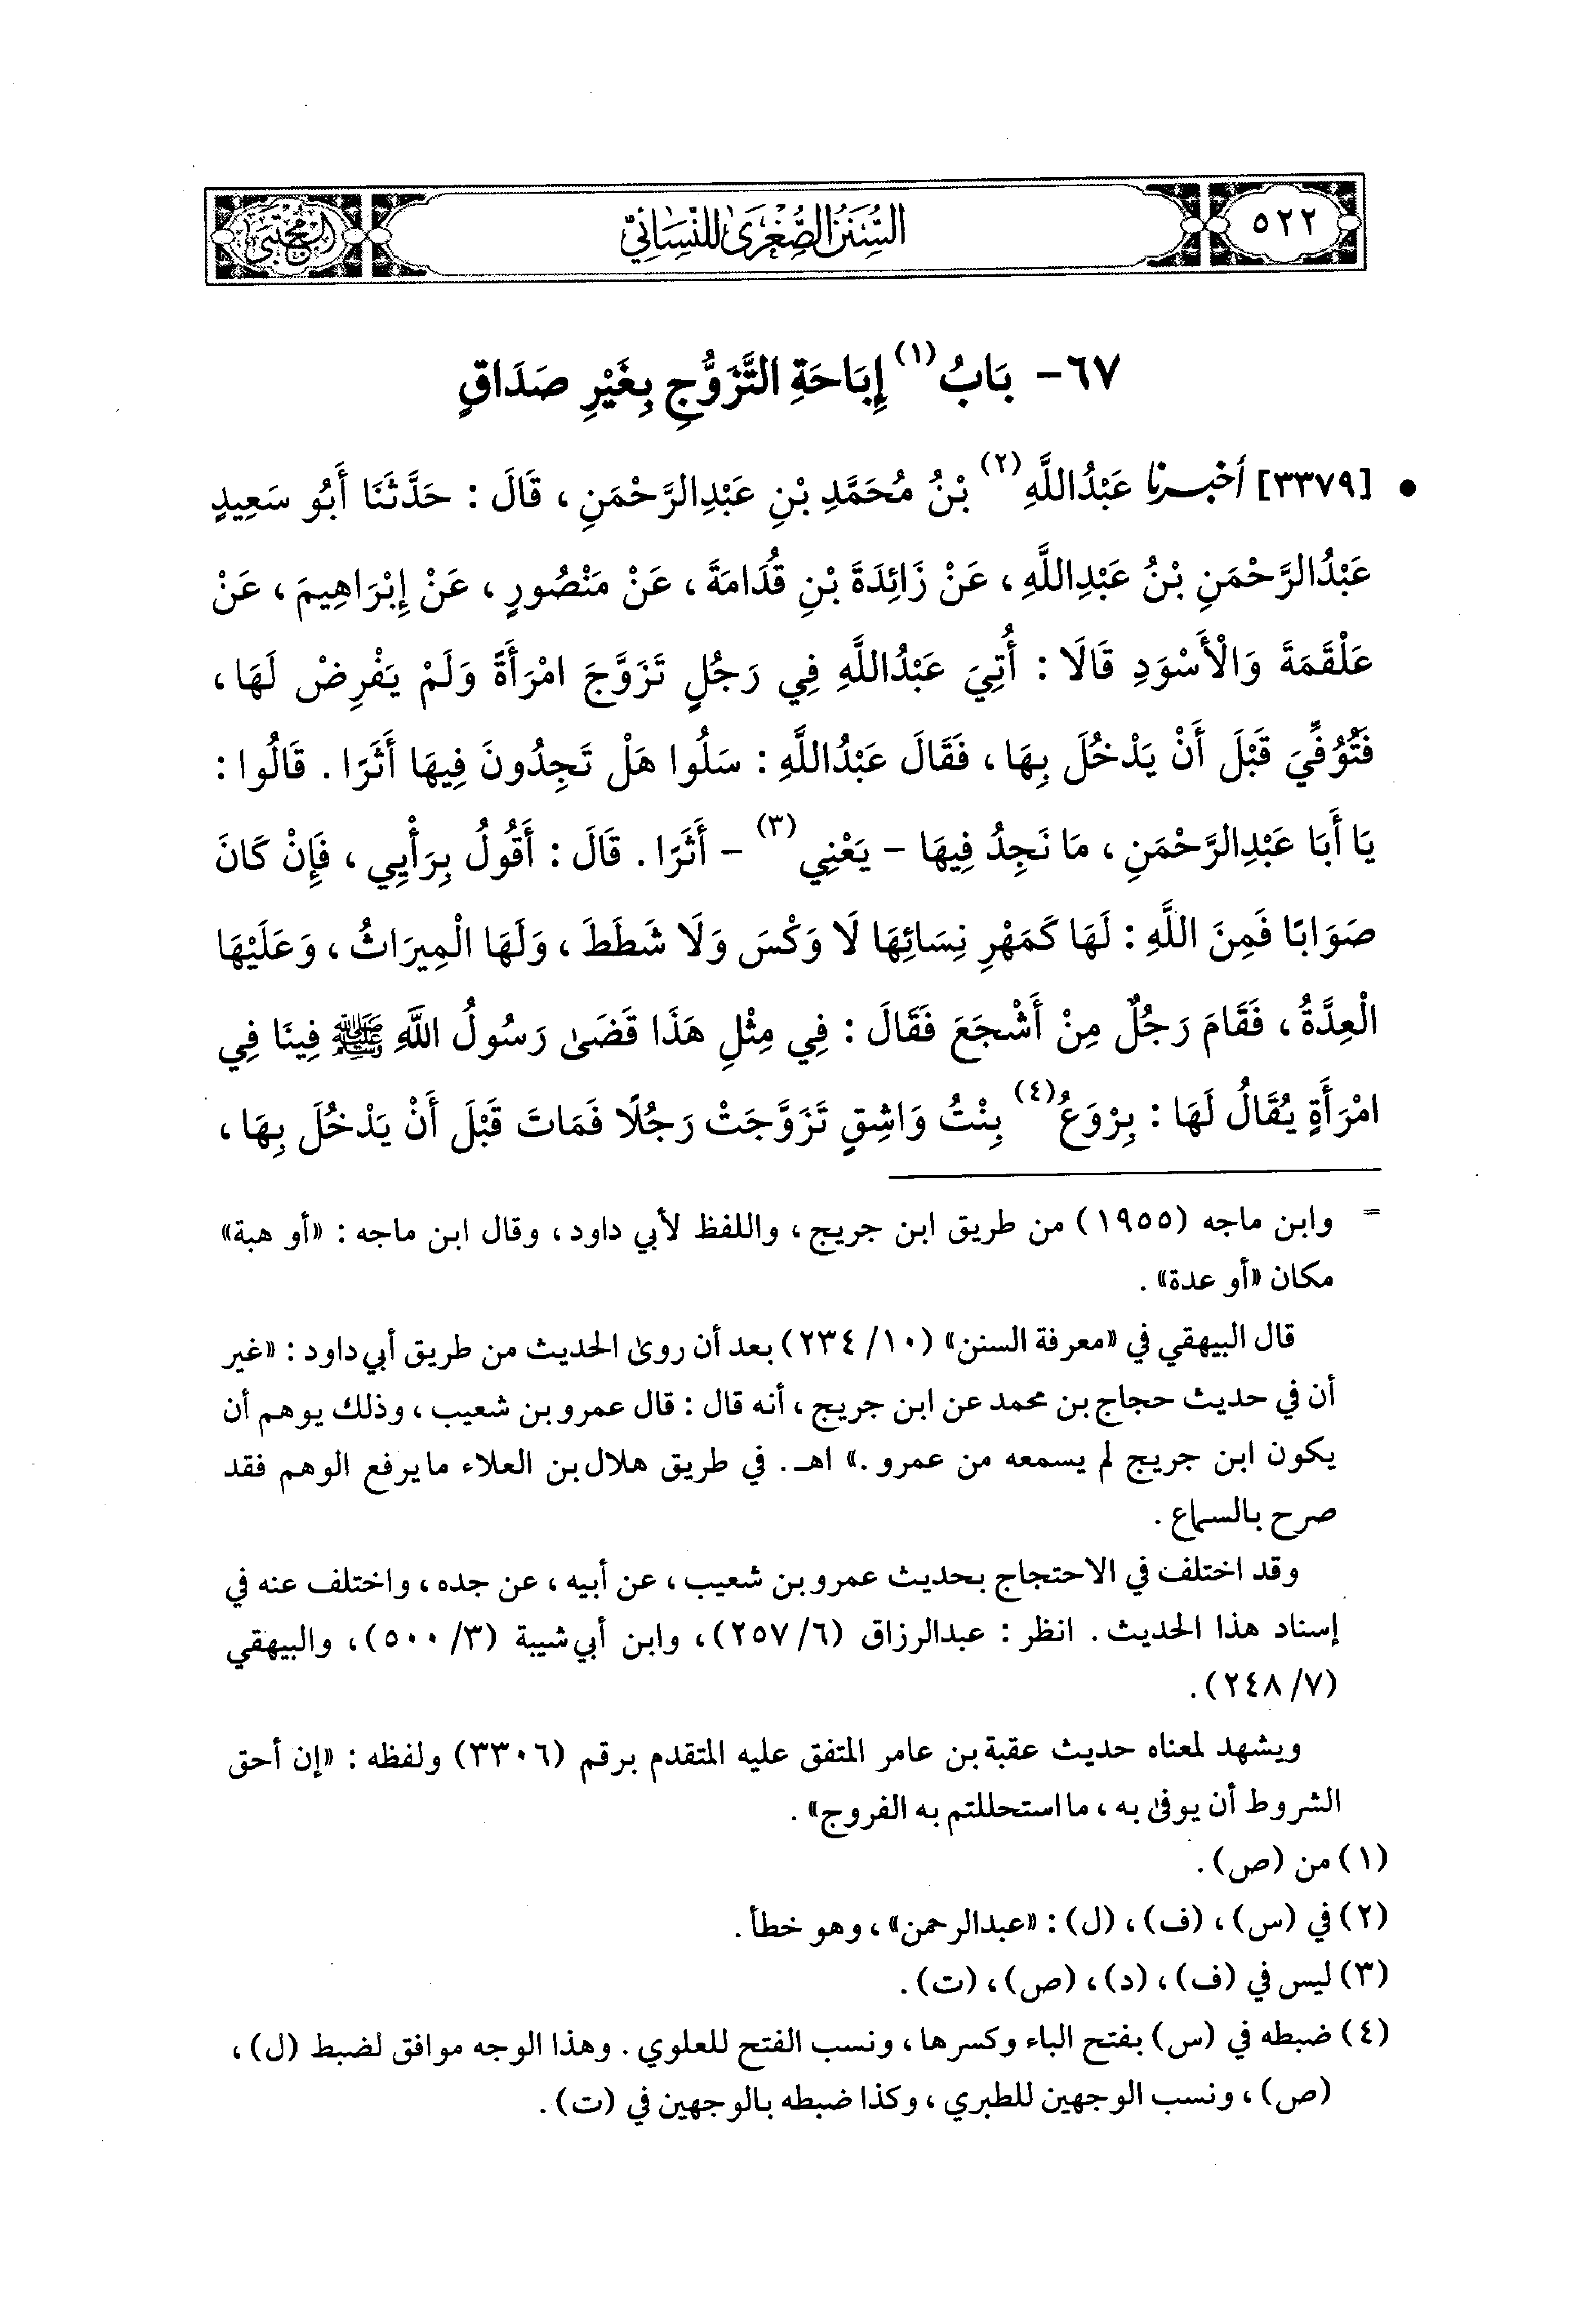 ٥٢٢
السُّنَنُ الصُّغْرَىٰ لِلنَّسَائِيِّ
المجتبى
٦٧- بَابُ (١) إِبَاحَةِ التَّزَوُّجِ بِغَيْرِ صَدَاقٍ
• [٣٣٧٩] أخبرنا عَبْدُاللَّهِ (٢) بْنُ مُحَمَّدِ بْنِ عَبْدِالرَّحْمَنِ ، قَالَ : حَدَّثَنَا أَبُو سَعِيدٍ
عَبْدُالرَّحْمَنِ بْنُ عَبْدِاللَّهِ ، عَنْ زَائِدَةَ بْنِ قُدَامَةَ ، عَنْ مَنْصُورٍ ، عَنْ إِبْرَاهِيمَ ، عَنْ
عَلْقَمَةَ وَالْأَسْوَدِ قَالَا : أُتِيَ عَبْدُاللَّهِ فِي رَجُلٍ تَزَوَّجَ امْرَأَةً وَلَمْ يَفْرِضْ لَهَا ،
فَتُوُفِّيَ قَبْلَ أَنْ يَدْخُلَ بِهَا ، فَقَالَ عَبْدُاللَّهِ : سَلُوا هَلْ تَجِدُونَ فِيهَا أَثَرًا . قَالُوا :
يَا أَبَا عَبْدِالرَّحْمَنِ ، مَا نَجِدُ فِيهَا - يَعْنِي (٣) - أَثَرًا . قَالَ : أَقُولُ بِرَأْيِي ، فَإِنْ كَانَ
صَوَابًا فَمِنَ اللَّهِ : لَهَا كَمَهْرِ نِسَائِهَا لَا وَكْسَ وَلَا شَطَطَ ، وَلَهَا الْمِيرَاثُ ، وَعَلَيْهَا
الْعِدَّةُ ، فَقَامَ رَجُلٌ مِنْ أَشْجَعَ فَقَالَ : فِي مِثْلِ هَذَا قَضَىٰ رَسُولُ اللَّهِ ﷺ فِينَا فِي
امْرَأَةٍ يُقَالُ لَهَا : بِرْوَعُ (٤) بِنْتُ وَاشِقٍ تَزَوَّجَتْ رَجُلًا فَمَاتَ قَبْلَ أَنْ يَدْخُلَ بِهَا ،
= وابن ماجه (١٩٥٥) من طريق ابن جريج ، واللفظ لأبي داود ، وقال ابن ماجه : «أو هبة»
مكان «أو عدة» .
قال البيهقي في «معرفة السنن» (١٠/ ٢٣٤) بعد أن روىٰ الحديث من طريق أبي داود : «غير
أن في حديث حجاج بن محمد عن ابن جريج ، أنه قال : قال عمرو بن شعيب ، وذلك يوهم أن
يكون ابن جريج لم يسمعه من عمرو .» اهـ . في طريق هلال بن العلاء ما يرفع الوهم فقد
صرح بالسماع .
وقد اختلف في الاحتجاج بحديث عمرو بن شعيب ، عن أبيه ، عن جده ، واختلف عنه في
إسناد هذا الحديث . انظر : عبدالرزاق (٦/ ٢٥٧) ، وابن أبي شيبة (٣/ ٥٠٠) ، والبيهقي
(٧/ ٢٤٨) .
ويشهد لمعناه حديث عقبة بن عامر المتفق عليه المتقدم برقم (٣٣٠٦) ولفظه : «إن أحق
الشروط أن يوفىٰ به ، ما استحللتم به الفروج» .
(١) من (ص) .
(٢) في (س) ، (ف) ، (ل) : «عبدالرحمن» ، وهو خطأ .
(٣) ليس في (ف) ، (د) ، (ص) ، (ت) .
(٤) ضبطه في (س) بفتح الباء وكسرها ، ونسب الفتح للعلوي . وهذا الوجه موافق لضبط (ل) ،
(ص) ، ونسب الوجهين للطبري ، وكذا ضبطه بالوجهين في (ت) .